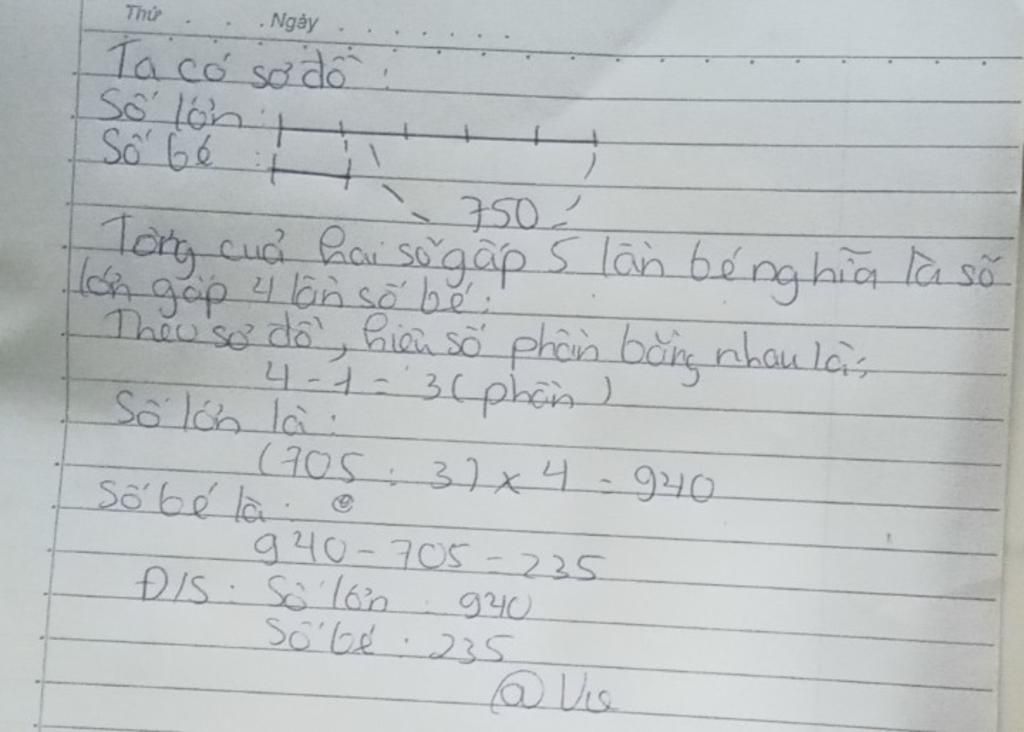 Thứ . . . .Ngày . . . . . . .
Ta có sơ đồ :
Số lớn :
Số bé :
750
Tổng cuả hai số gấp 5 lần bé nghĩa là số
lớn gấp 4 lần số bé :
Theo sơ đồ, hiệu số phần bằng nhau là :
4 - 1 = 3 ( phần )
Số lớn là :
(705 : 3) x 4 = 940
Số bé là :
940 - 705 = 235
Đ/S : Số lớn : 940
Số bé : 235